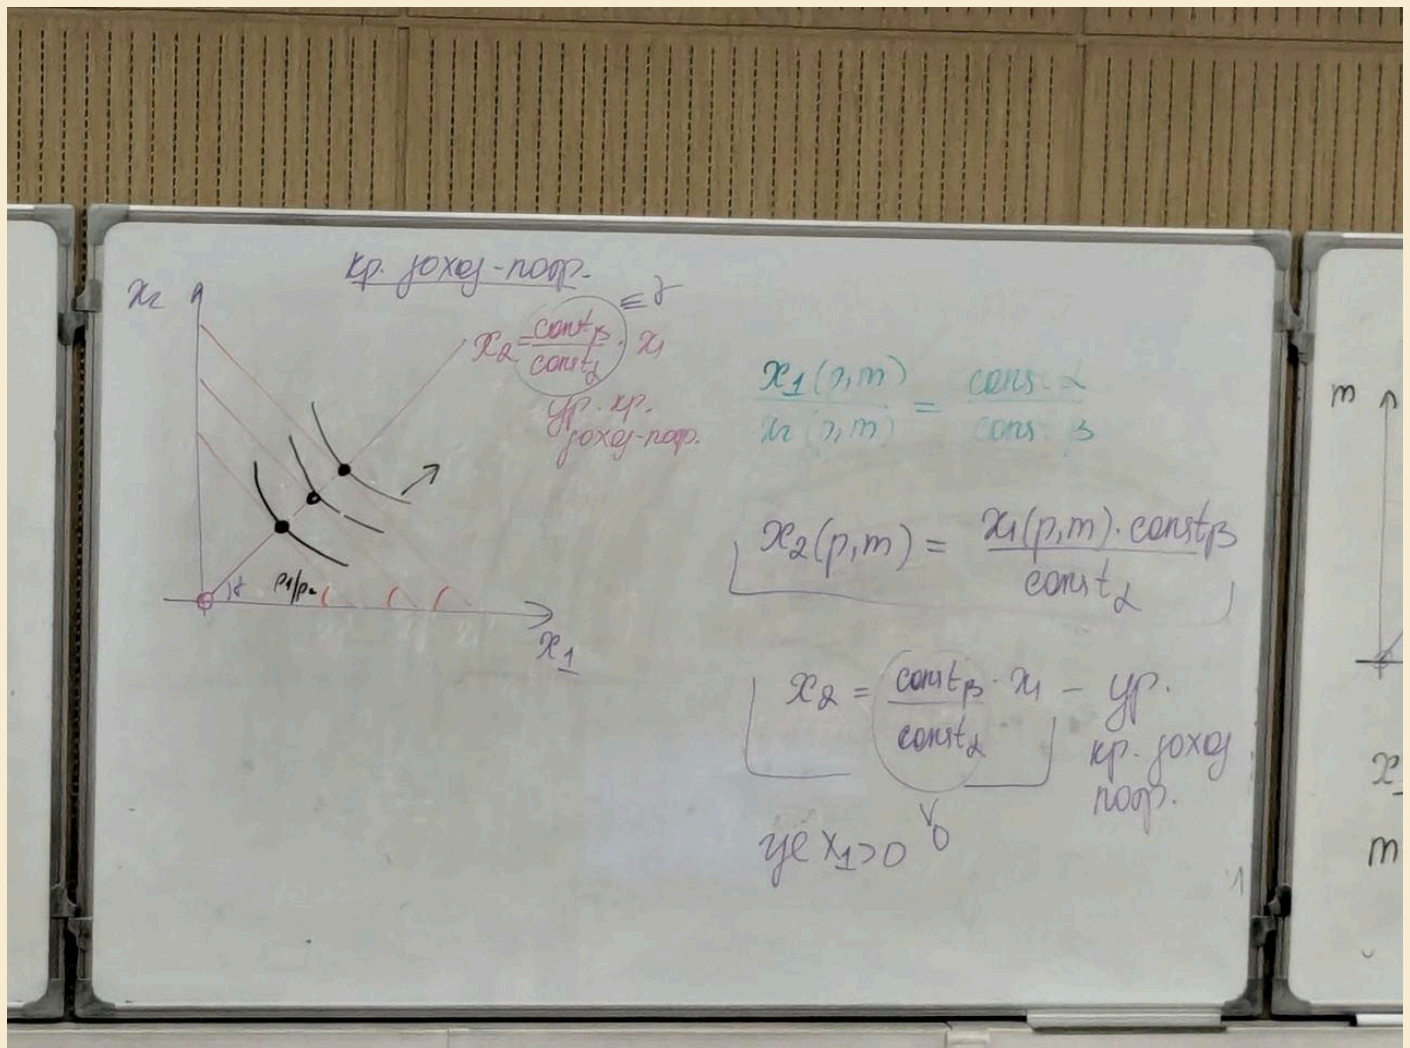 кр. доход-потр.
x₂
x₂ = const_β / const_α · x₁
≡ γ
ур. кр.
доход-потр.
γ
p₁/p₂
x₁
x₁(p,m) / x₂(p,m) = const α / const β
x₂(p,m) = x₁(p,m) · const_β / const_α
x₂ = const_β / const_α · x₁ – ур.
кр. доход
потр.
где x₁>0
∨
0
1
m
x
m